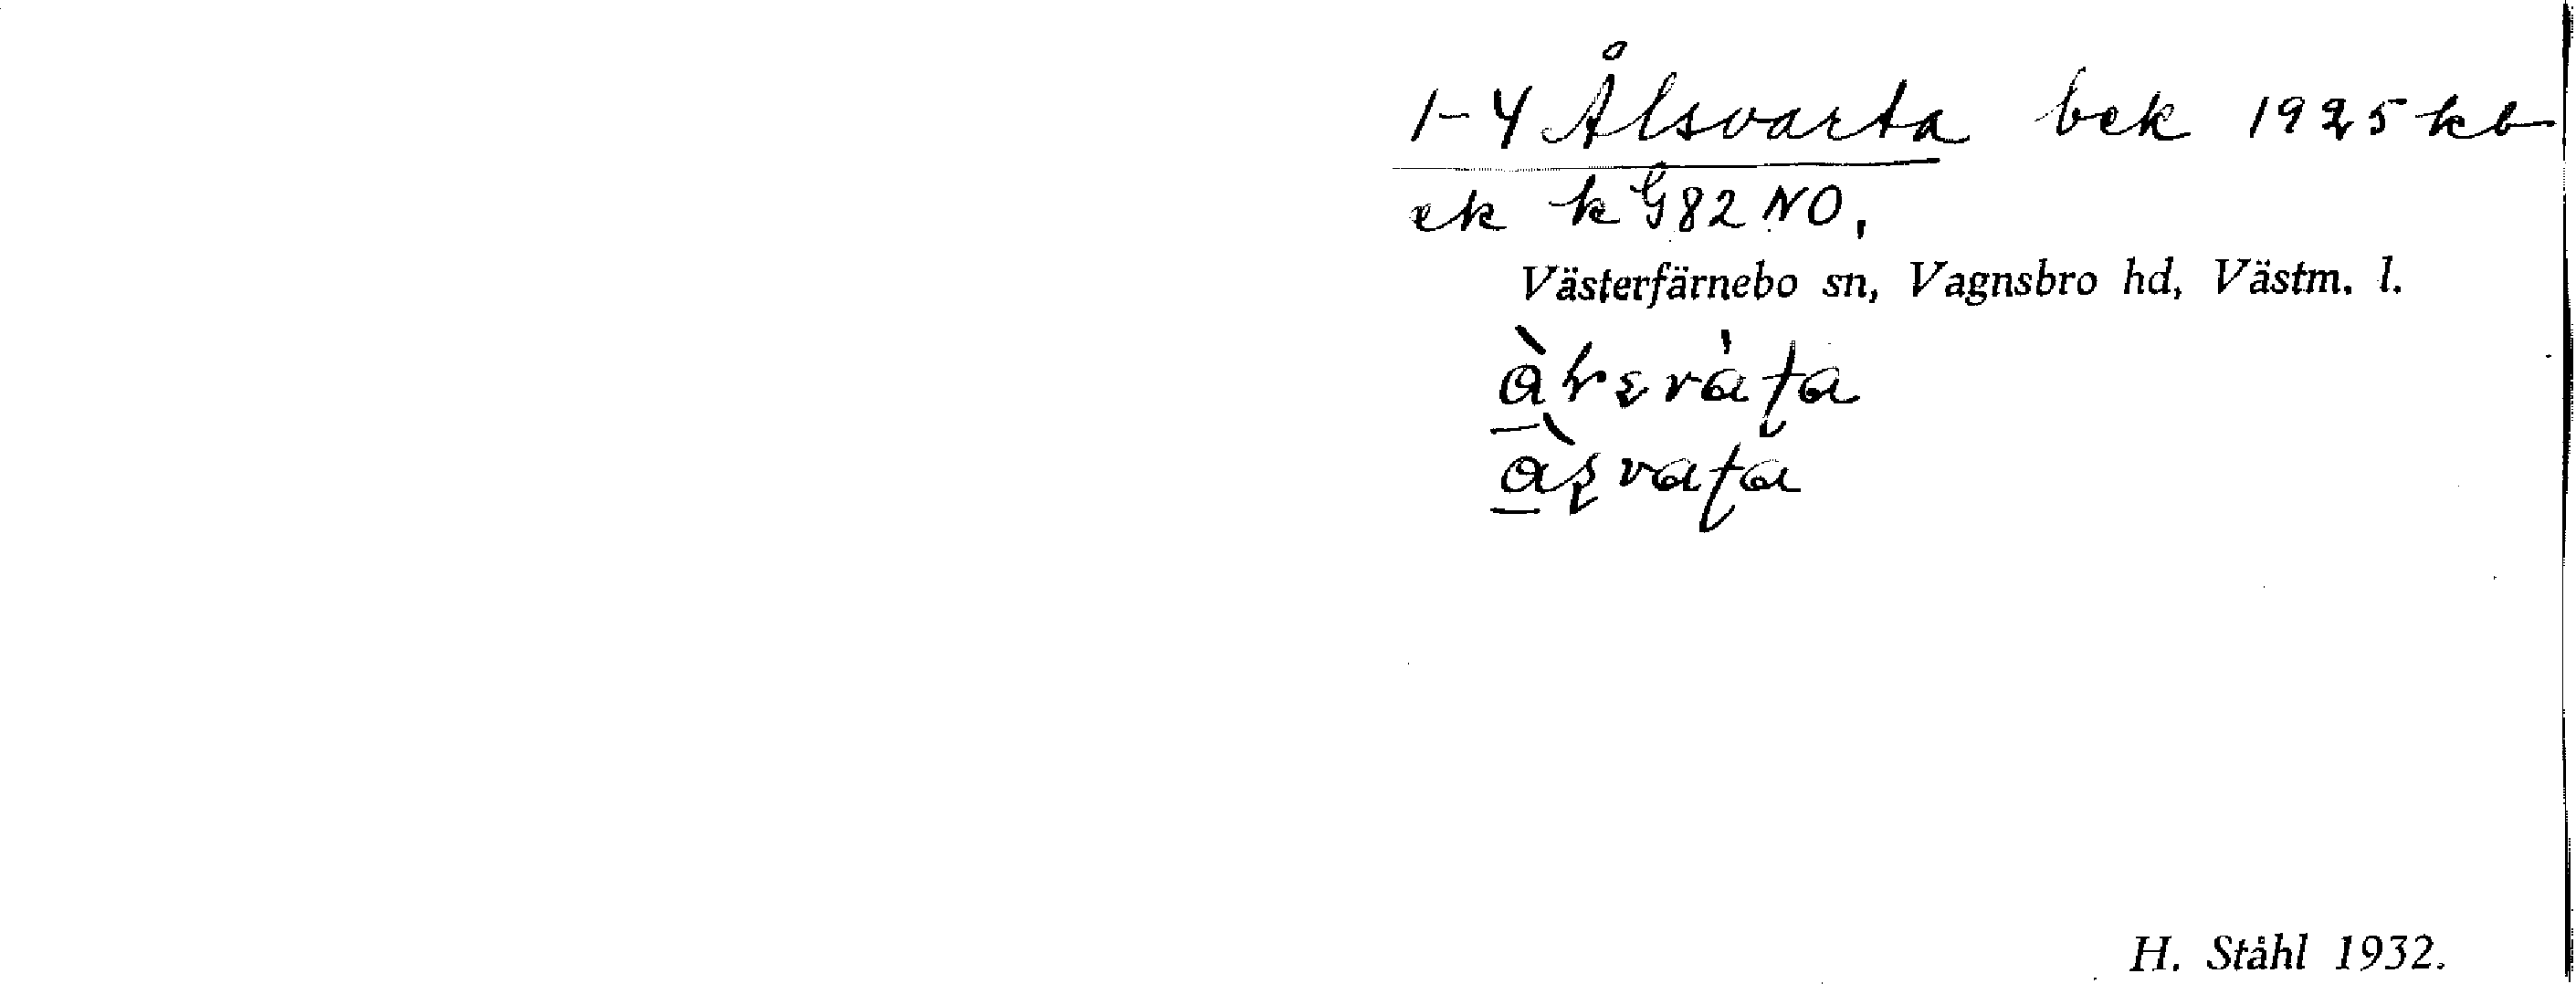 1-4 Ålsvarta bek 1925 kb
ek k G82 NO.
Västerfärnebo sn, Vagnsbro hd, Västm. l.
H. Ståhl 1932.